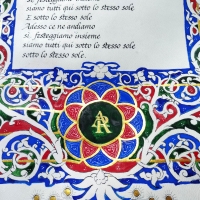 si festeggiamo insieme
siamo tutti qui sotto lo stesso sole
E sotto lo stesso sole
Adesso ce ne andiamo
sì festeggiamo insieme
siamo tutti qui sotto lo stesso sole
sotto lo stesso sole.
AR